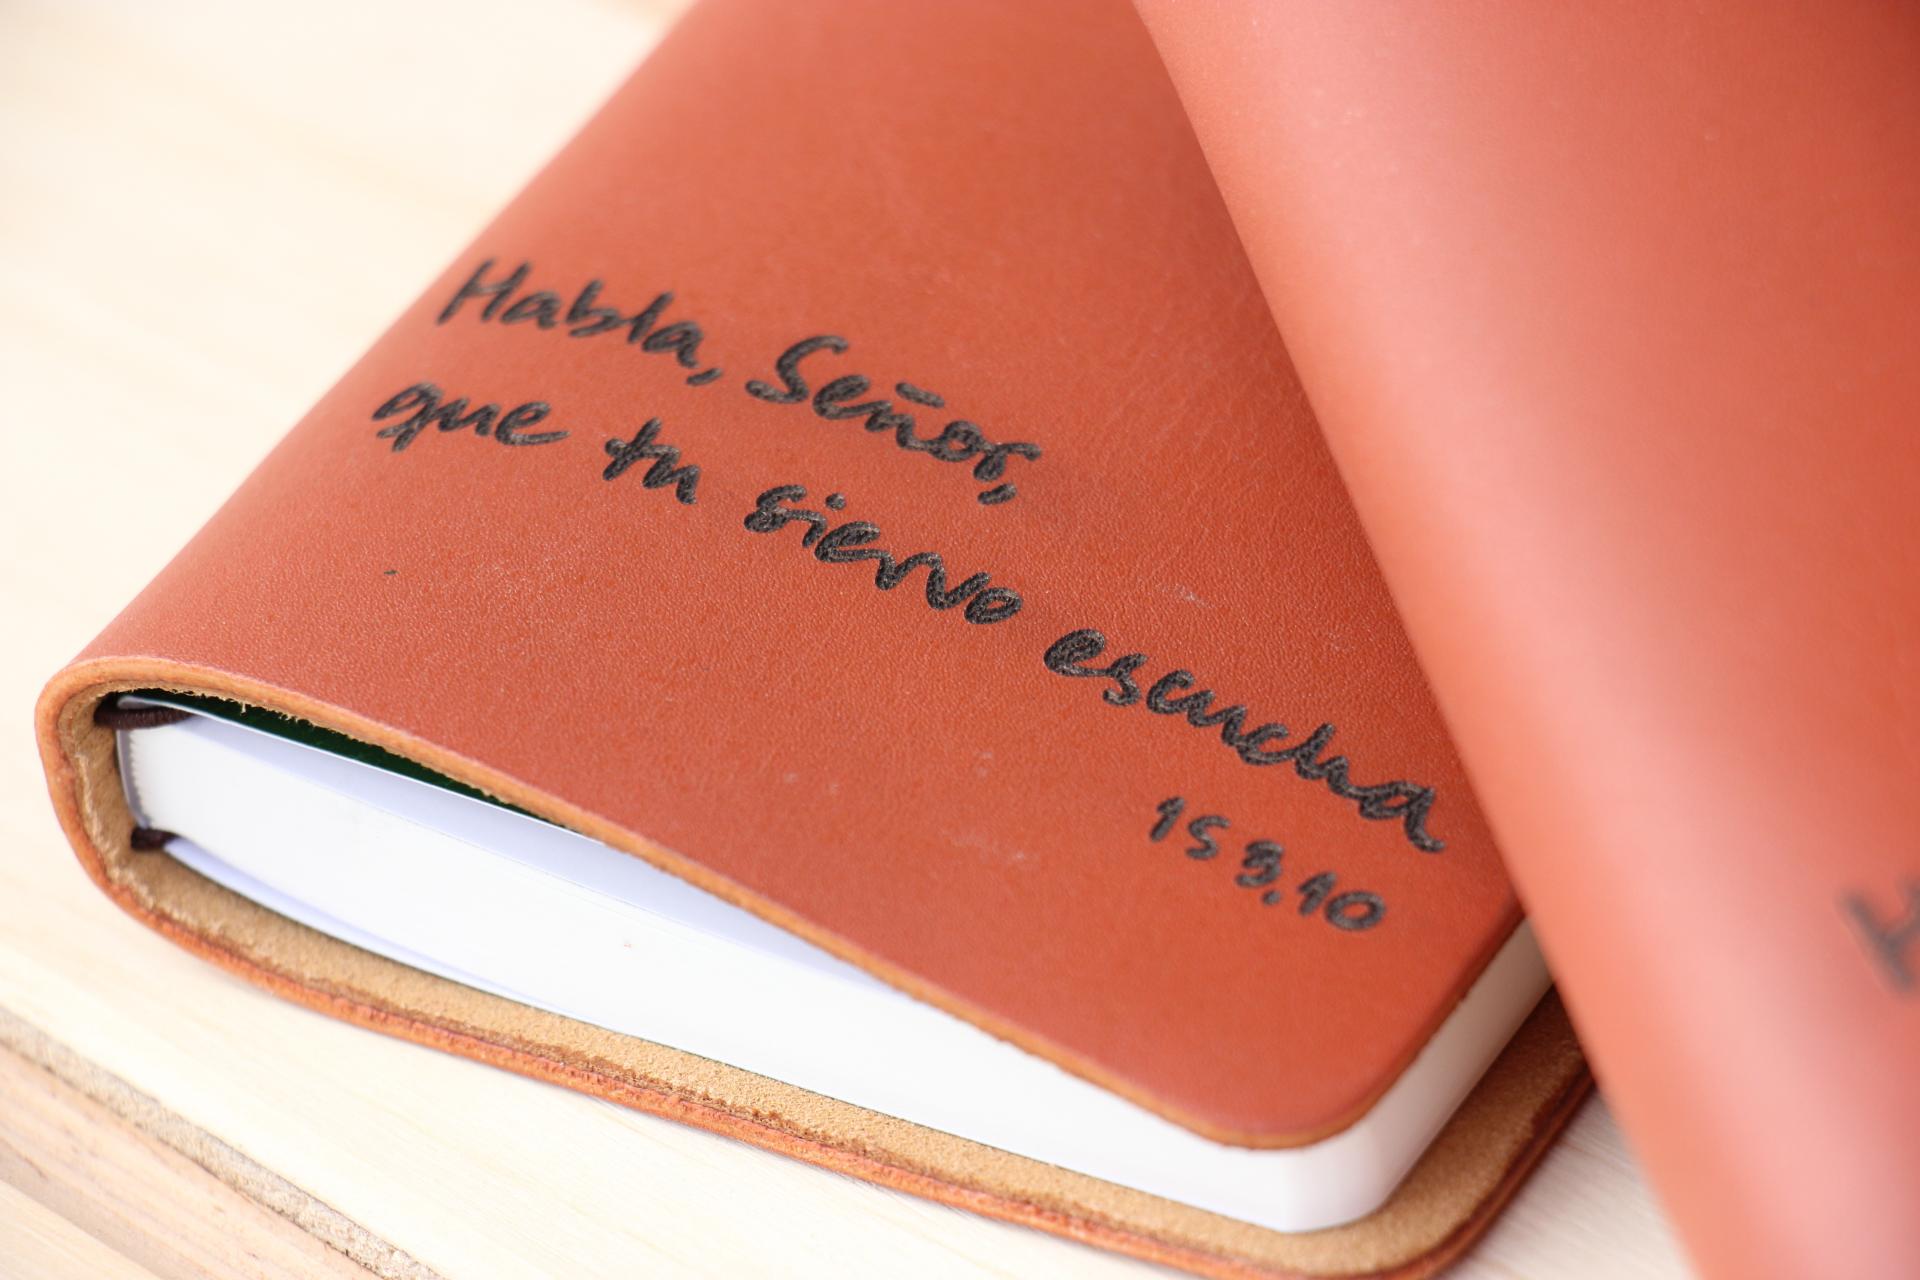 Habla, Señor,
que tu siervo escucha
1S 3.10